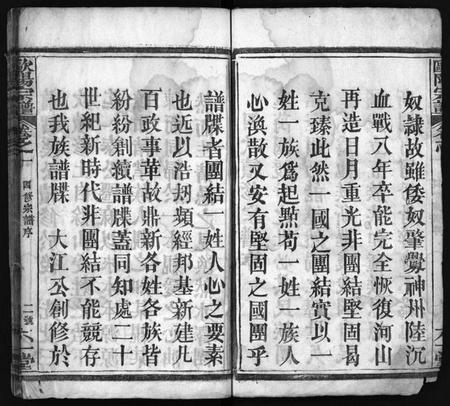 奴隷故雖倭奴肇釁神州陸沉
血戰八年卒能完全恢復河山
再造日月重光非團結堅固曷
克臻此然一國之團結實以一
姓一族爲起點苟一姓一族人
心渙散又安有堅固之國團乎
譜牒者團結一姓人心之要素
也近以浩刼頻經邦基新建凢
百政事革故鼎新各姓各族皆
紛紛創續譜牒蓋同知處二十
世紀新時代非團結不能競存
也我族譜牒 大江公創修於
歐陽宗譜 卷之一 四修宗譜序 二 堂